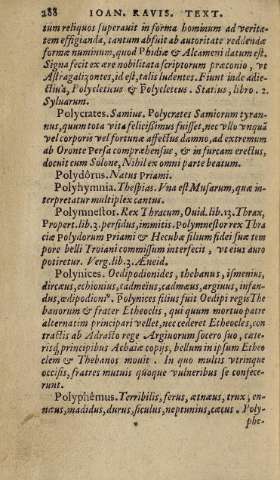 288 IOAN. RAVIS. TEXT.
tum reliquos superauit in forma hominum ad verita-
tem effigianda, tantum absuit ab autoritate reddendæ
formæ numinum, quod Phidiæ & Alcameni datum est.
Signa fecit ex ære nobilitata scriptorum præconio, vt
Astragalizontes, id est, talis ludentes. Fiunt inde adie-
ctiua, Polycleticus & Polycleteus. Statius, libro. 2.
Syluarum.
Polycrates. Samius. Polycrates Samiorum tyran-
nus, quum tota vita felicissimus fuisset, nec vllo vnquā
vel corporis vel fortunæ affectus damno, ad extremum
ab Oronte Persa comprehensus, & in furcam erectus,
docuit cum Solone, Nihil ex omni parte beatum.
Polydôrus. Natus Priami.
Polyhymnia. Thespias. Vna est Musarum, quæ in-
terpretatur multiplex cantus.
Polymnestor. Rex Thracum, Ouid. lib. 13. Thrax,
Propert. lib. 3. perfidus, immitis. Polymnestor rex Thra
ciæ Polydorum Priami & Hecubæ filium fidei suæ tem
pore belli Troiani commissum interfecit, vt eius auro
potiretur. Verg. lib. 3. Æneid.
Polynices. Oedipodionides, thebanus, ismenius,
dircæus, echionius, cadmeius, cadmæus, argiuus, infan-
dus, œdipodioni⁹. Polynices filius fuit Oedipi regis The
banorum & frater Etheoclis, qui quum mortuo patre
alternatim principari vellet, nec cederet Etheocles, con
tractis ab Adrasto rege Arginorum socero suo, cæte-
risq; principibus Achaiæ copijs, bellum in ipsum Etheo
clem & Thebanos mouit. In quo multis vtrinque
occisis, fratres mutuis quoque vulneribus se confece-
runt.
Polyphêmus. Terribilis, ferus, ætnæus, trux, en-
næus, madidus, durus, siculus, neptunius, cæcus. Poly-
phe-